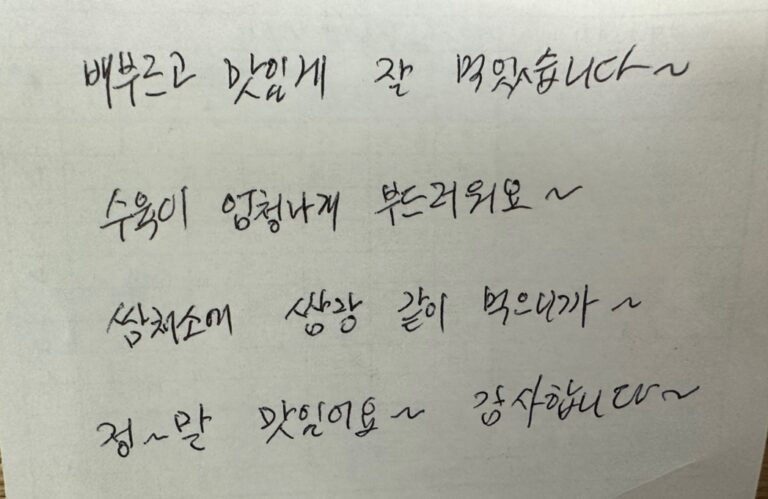 배부르고 맛있게 잘 먹었습니다~
수육이 엄청나게 부드러워요~
쌈채소에 쌈장 같이 먹으니까~
정~말 맛있어요~ 감사합니다~